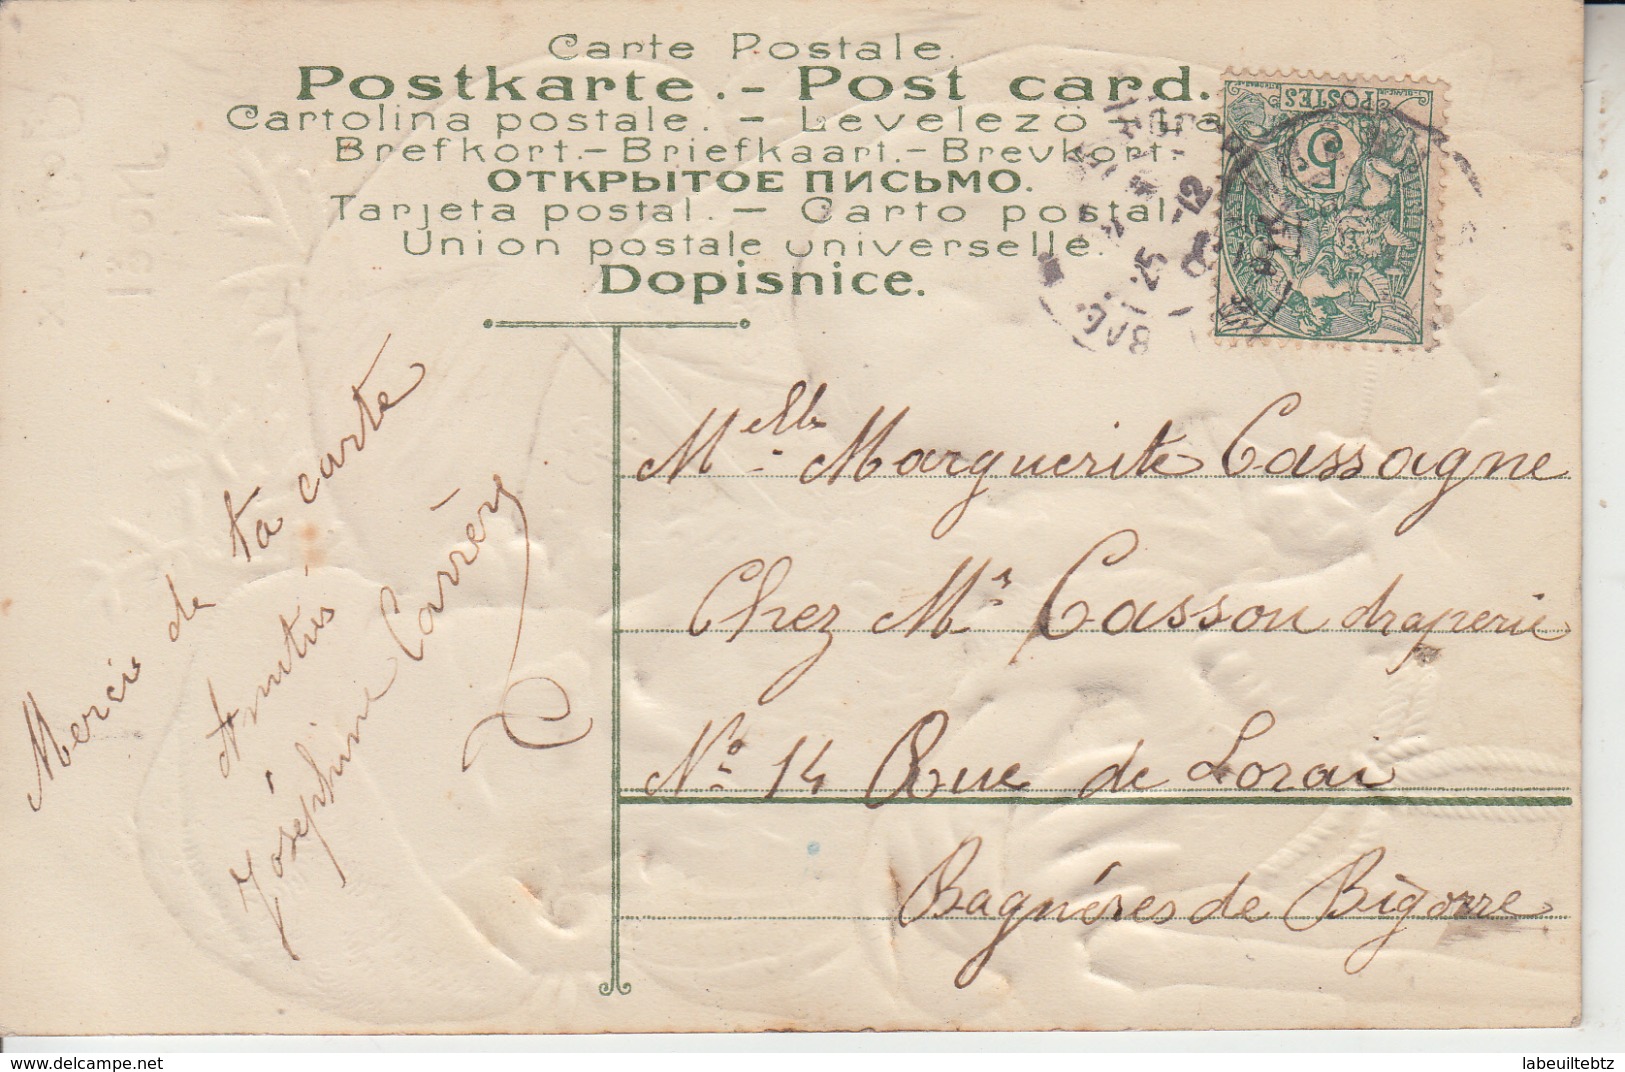 Carte Postale.
Postkarte. – Post card.
Cartolina postale. – Levelezö
Brefkort. – Briefkaart. – Brevkort.
ОТКРЫТОЕ ПИСЬМО.
Tarjeta postal. – Carto postal
Union postale universelle.
Dopisnice.
POSTES
5
25
12
BAG
Merci de ta carte
Amitiés
Joséphine Carrère
Melle Marguerite Cassagne
Chez Mr Casson draperie
No 14 Rue de Lorai
Bagnéres de Bigorre
www.delcampe.net
labeuiltebtz